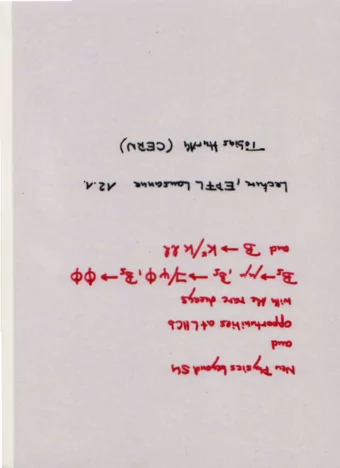 New Physics beyond SM
and
opportunities at LHCb
with the rare decays
Bs → μμ, Bs → J/ψ Φ, Bs → ΦΦ
and B → K*/K ll
Lecture, EPFL Lausanne 12.1.
Tobias Hurth (CERN)